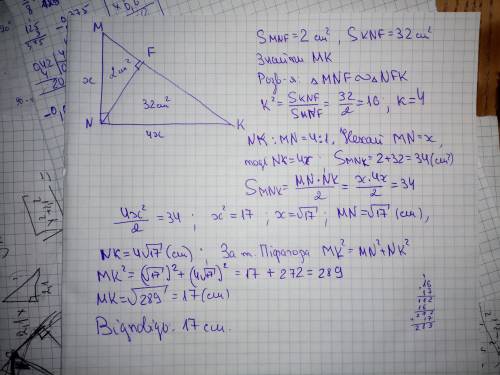 M
F
x
2 cm²
32 cm²
N
K
4x
S MNF = 2 cm², S KNF = 32 cm²
Знайти MK
Розв-я: △ MNF ∾ △ NFK
K² = S KNF / S MNF = 32/2 = 16, K = 4
NK : MN = 4:1, Нехай MN = x,
тоді NK = 4x S MNK = 2 + 32 = 34 (cm²)
S MNK = MN · NK / 2 = x · 4x / 2 = 34
4x²/2 = 34 ; x² = 17 ; x = √17 ; MN = √17 (cm),
NK = 4√17 (cm) ; За т. Піфагора MK² = MN² + NK²
MK² = (√17)² + (4√17)² = 17 + 272 = 289
MK = √289 = 17 (cm)
Відповідь: 17 cm.
16
17
112
16
272
17